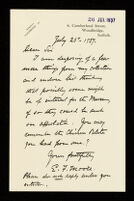 26 JUL 1937
8, Cumberland Street,
Woodbridge,
Suffolk.
July 25th 1937.
Dear Sir
I am disposing of a few
more things from my collection
and enclose list thinking
that possibly some might
be of interest for the Museum,
if so they could be sent
on approbation. You may
remember the Chinese Robe
you had from me?
Yours faithfully,
E. F. Moore
Please